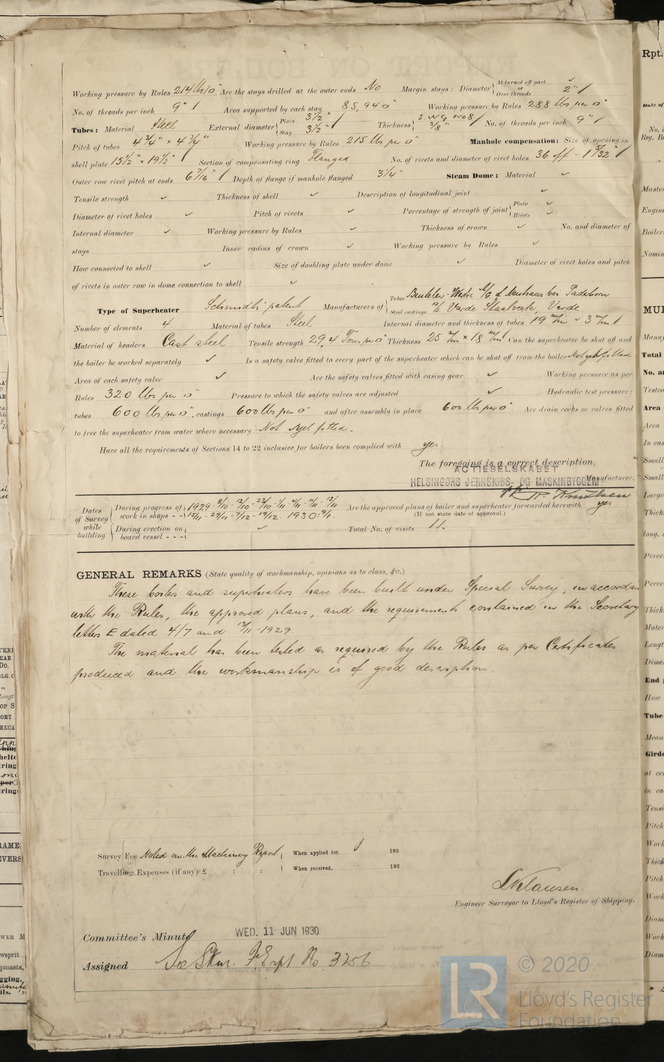 Working pressure by Rules 214 lbs/□" Are the stays drilled at the outer ends No Margin stays: Diameter { At turned off part, ✓ or Over threads 2"
No. of threads per inch 9" Area supported by each stay 85,940" Working pressure by Rules 288 lbs per □"
Tubes: Material Steel External diameter { Plain 3½" Stay 3½" Thickness { S.W.G. No 8 3/8" No. of threads per inch 9"
Pitch of tubes 4¾" × 4¾" Working pressure by Rules 215 lbs per □" Manhole compensation: Size of opening in
shell plate 15½" · 19½" Section of compensating ring Flanged No. of rivets and diameter of rivet holes 36 off - 1 5/32"
Outer row rivet pitch at ends 6 7/16" Depth of flange if manhole flanged 3¼" Steam Dome: Material ✓
Tensile strength ✓ Thickness of shell ✓ Description of longitudinal joint ✓
Diameter of rivet holes ✓ Pitch of rivets ✓ Percentage of strength of joint { Plate ✓ Rivets ✓
Internal diameter ✓ Working pressure by Rules ✓ Thickness of crown ✓ No. and diameter of
stays Inner radius of crown ✓ Working pressure by Rules ✓
How connected to shell ✓ Size of doubling plate under dome ✓ Diameter of rivet holes and pitch
of rivets in outer row in dome connection to shell ✓
Type of Superheater Schmidts patent Manufacturers of { Tubes
Steel castings Varde Staalverk, Varde
Number of elements 4 Material of tubes Steel Internal diameter and thickness of tubes 19 m/m - 3 m/m
Material of headers Cast steel Tensile strength 29,4 Tons per □" Thickness 25 m/m × 18 m/m Can the superheater be shut off and
the boiler be worked separately ✓ Is a safety valve fitted to every part of the superheater which can be shut off from the boiler Not yet fitted
Area of each safety valve ✓ Are the safety valves fitted with easing gear ✓ Working pressure as per
Rules 320 lbs per □" Pressure to which the safety valves are adjusted ✓ Hydraulic test pressure:
tubes 600 lbs per □", castings 600 lbs per □" and after assembly in place 600 lbs per □" Are drain cocks or valves fitted
to free the superheater from water where necessary Not yet fitted.
Have all the requirements of Sections 14 to 22 inclusive for boilers been complied with yes
The foregoing is a correct description,
ACTIESELSKABET
HELSINGØRS JERNSKIBS- OG MASKINBYGGERI Manufacturer.
Dates of Survey while building { During progress of work in shops - - 1929 1930 Are the approved plans of boiler and superheater forwarded herewith yes
(If not state date of approval.)
During erection on board vessel - - - ✓ Total No. of visits 11.
GENERAL REMARKS (State quality of workmanship, opinions as to class, &c.)
These boilers and superheaters have been built under Special Survey, in accordan
with the Rules, the approved plans, and the requirements contained in the Secretary
letters E dated 4/7 and 1929
The material has been tested as required by the Rules as per Certificates
produced and the workmanship is of good description.
Survey Fee Noted on the Machinery Report When applied for, 193
Travelling Expenses (if any) £ : : When received, 192
Engineer Surveyor to Lloyd's Register of Shipping.
Committee's Minute WED. 11 JUN 1930
Assigned See Rpt No 3256
© 2020
LR Lloyd's Register
Foundation
Rpt.